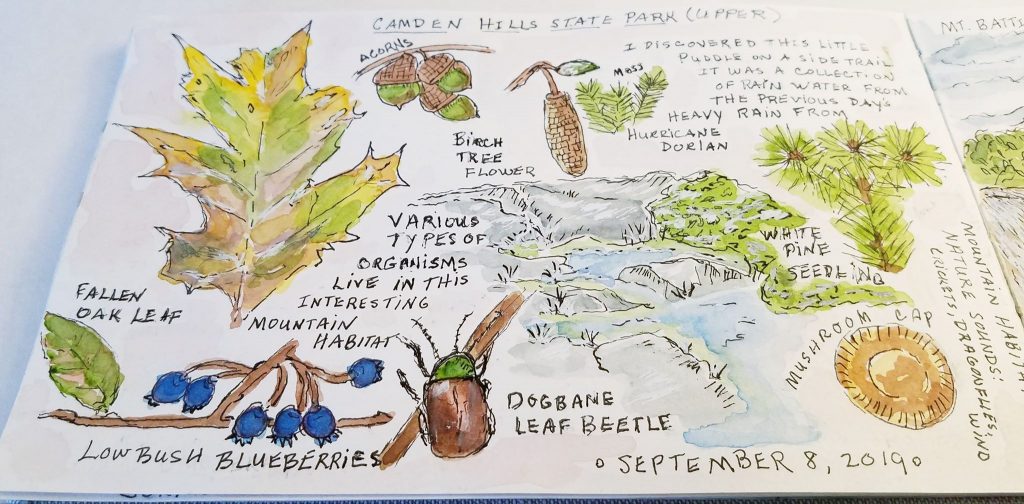 CAMDEN HILLS STATE PARK (UPPER)
ACORNS
MOSS
I DISCOVERED THIS LITTLE
PUDDLE ON A SIDE TRAIL
IT WAS A COLLECTION
OF RAIN WATER FROM
THE PREVIOUS DAY'S
HEAVY RAIN FROM
HURRICANE
DORIAN
BIRCH
TREE
FLOWER
VARIOUS
TYPES OF
ORGANISMS
LIVE IN THIS
INTERESTING
MOUNTAIN
HABITAT
WHITE
PINE
SEEDLING
FALLEN
OAK LEAF
MUSHROOM CAP
DOGBANE
LEAF BEETLE
LOWBUSH BLUEBERRIES
SEPTEMBER 8, 2019
MOUNTAIN HABITA
NATURE SOUNDS:
CRICKETS, DRAGONFLIES,
WIND
MT.